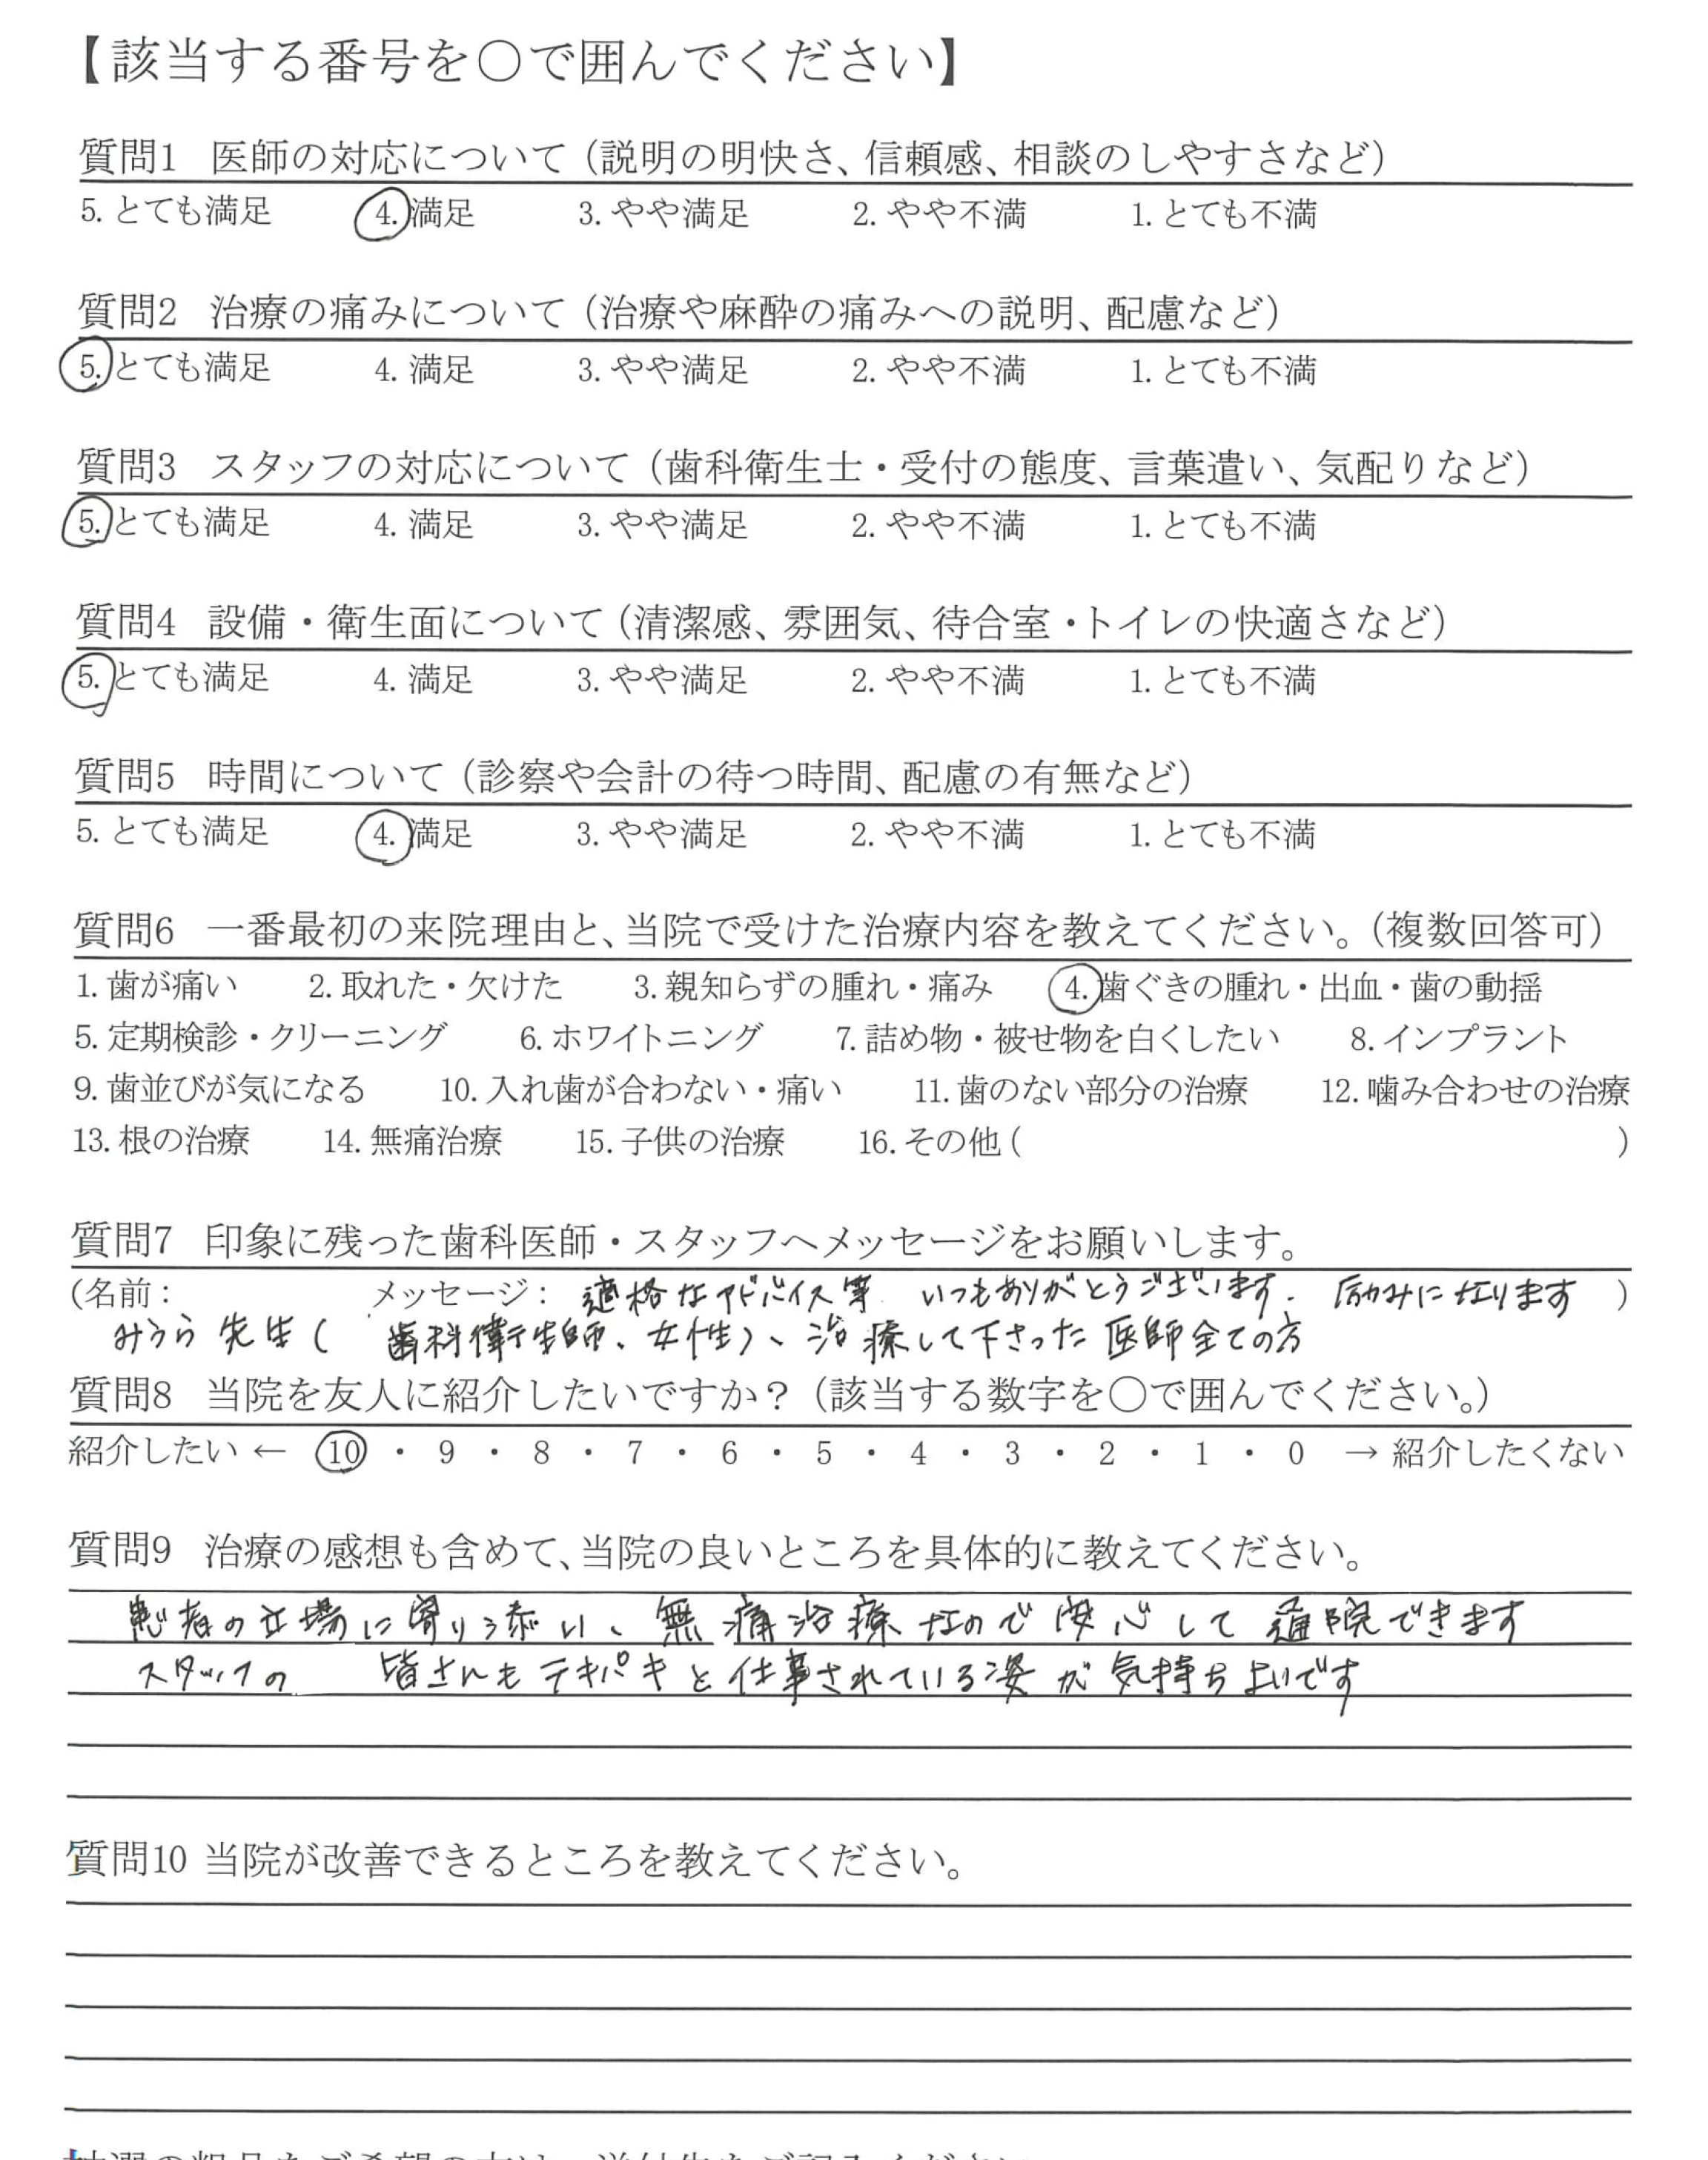 【該当する番号を○で囲んでください】
質問1 医師の対応について（説明の明快さ、信頼感、相談のしやすさなど）
5. とても満足 4. 満足 3. やや満足 2. やや不満 1. とても不満
質問2 治療の痛みについて（治療や麻酔の痛みへの説明、配慮など）
5. とても満足 4. 満足 3. やや満足 2. やや不満 1. とても不満
質問3 スタッフの対応について（歯科衛生士・受付の態度、言葉遣い、気配りなど）
5. とても満足 4. 満足 3. やや満足 2. やや不満 1. とても不満
質問4 設備・衛生面について（清潔感、雰囲気、待合室・トイレの快適さなど）
5. とても満足 4. 満足 3. やや満足 2. やや不満 1. とても不満
質問5 時間について（診察や会計の待つ時間、配慮の有無など）
5. とても満足 4. 満足 3. やや満足 2. やや不満 1. とても不満
質問6 一番最初の来院理由と、当院で受けた治療内容を教えてください。（複数回答可）
1. 歯が痛い 2. 取れた・欠けた 3. 親知らずの腫れ・痛み 4. 歯ぐきの腫れ・出血・歯の動揺
5. 定期検診・クリーニング 6. ホワイトニング 7. 詰め物・被せ物を白くしたい 8. インプラント
9. 歯並びが気になる 10. 入れ歯が合わない・痛い 11. 歯のない部分の治療 12. 噛み合わせの治療
13. 根の治療 14. 無痛治療 15. 子供の治療 16. その他 ( )
質問7 印象に残った歯科医師・スタッフへメッセージをお願いします。
(名前： メッセージ： 適格なアドバイス等 いつもありがとうございます. 励みになります )
みうら 先生 ( 歯科衛生師、女性)、治療して下さった医師全ての方
質問8 当院を友人に紹介したいですか？（該当する数字を○で囲んでください。）
紹介したい ← 10 ・ 9 ・ 8 ・ 7 ・ 6 ・ 5 ・ 4 ・ 3 ・ 2 ・ 1 ・ 0 → 紹介したくない
質問9 治療の感想も含めて、当院の良いところを具体的に教えてください。
患者の立場に寄り添い、無痛治療なので安心して通院できます
スタッフの 皆さんもテキパキと仕事されている姿が気持ちよいです
質問10 当院が改善できるところを教えてください。